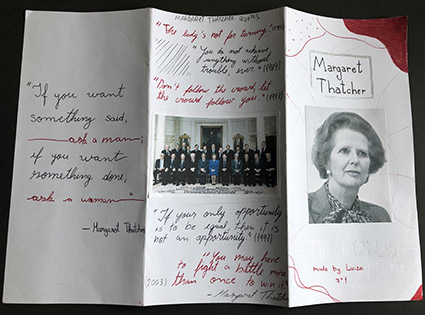 "If you want
something said,
ask a man;
if you want
something done,
ask a woman"
— Margaret Thatcher
MARGARET THATCHER QUOTES
"The lady's not for turning"
"You do not achieve
anything without
trouble, ever." (1984)
"Don't follow the crowd, let
the crowd follow you."
"If your only opportunity
is to be equal, then it is
not an opportunity"
"You may have
to fight a battle more
(2003) than once to win it"
- Margaret Thatcher
Margaret
Thatcher
made by Luiza
7°1